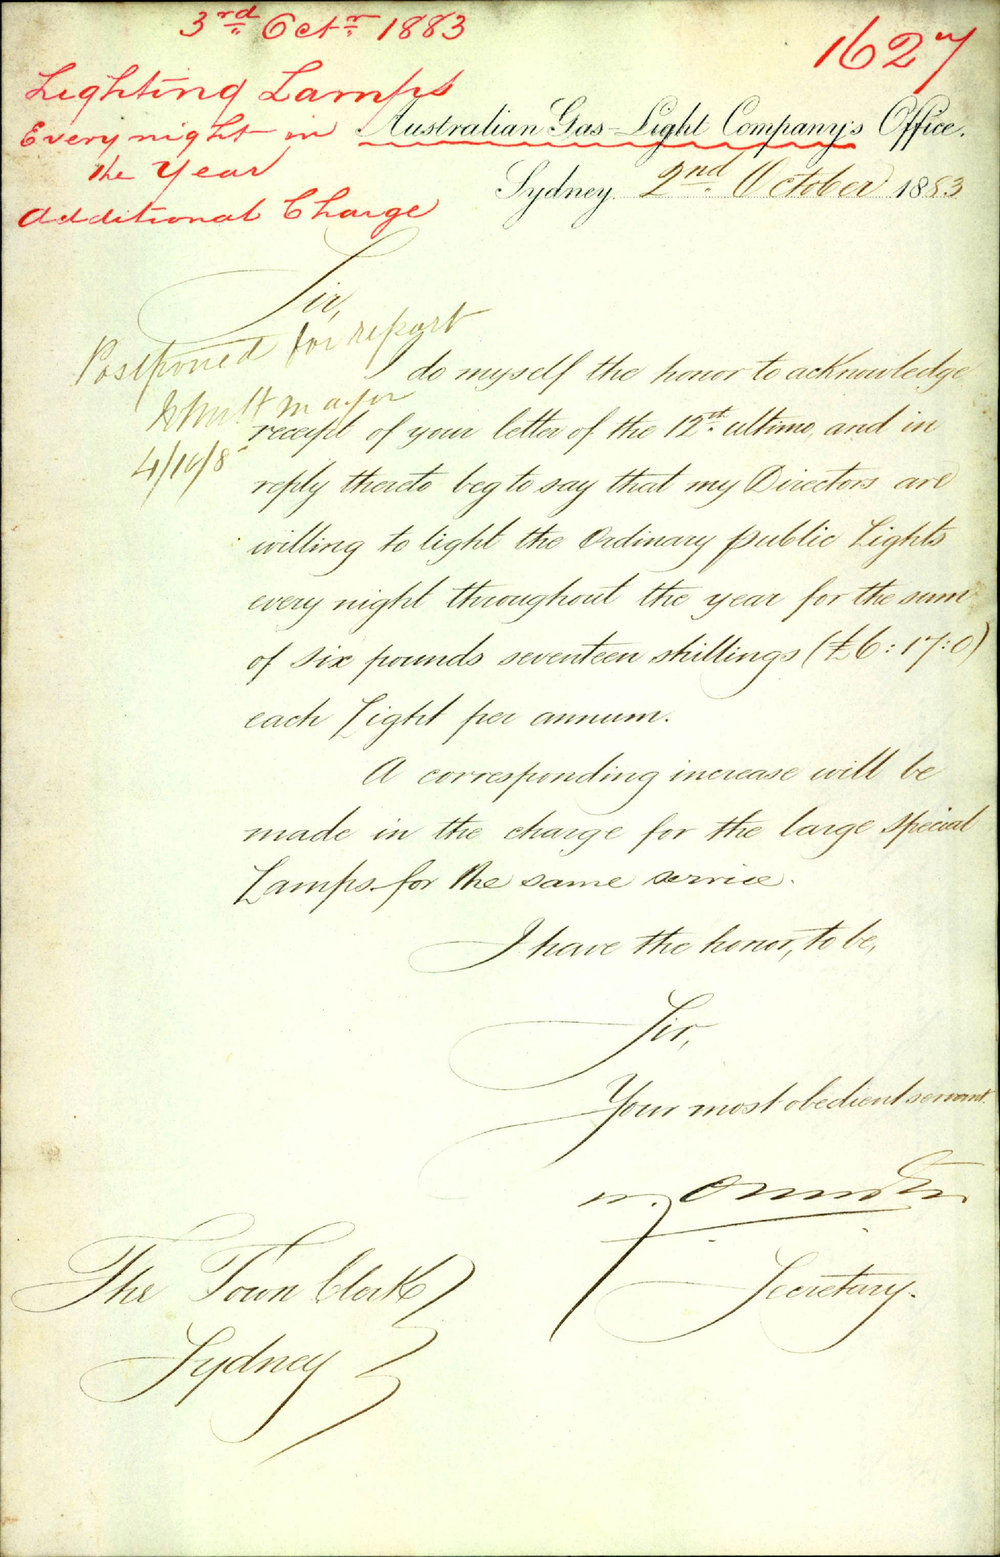 3rd Octr 1883
1627
Lighting Lamps
Every night in
the Year
Additional Charge
Australian Gas-Light Company's Office.
Sydney 2nd October 1883
Sir,
Postponed for report
Mayor
4/10/8
I do myself the honor to acknowledge
receipt of your letter of the 12st ultimo, and in
reply thereto beg to say that my Directors are
willing to light the Ordinary public Lights
every night throughout the year for the sum
of six pounds seventeen shillings (£6:17:0)
each Light per annum.
A corresponding increase will be
made in the charge for the large special
Lamps for the same service.
I have the honor, to be,
Sir,
Your most obedient servant.
Secretary.
The Town Clerk
Sydney